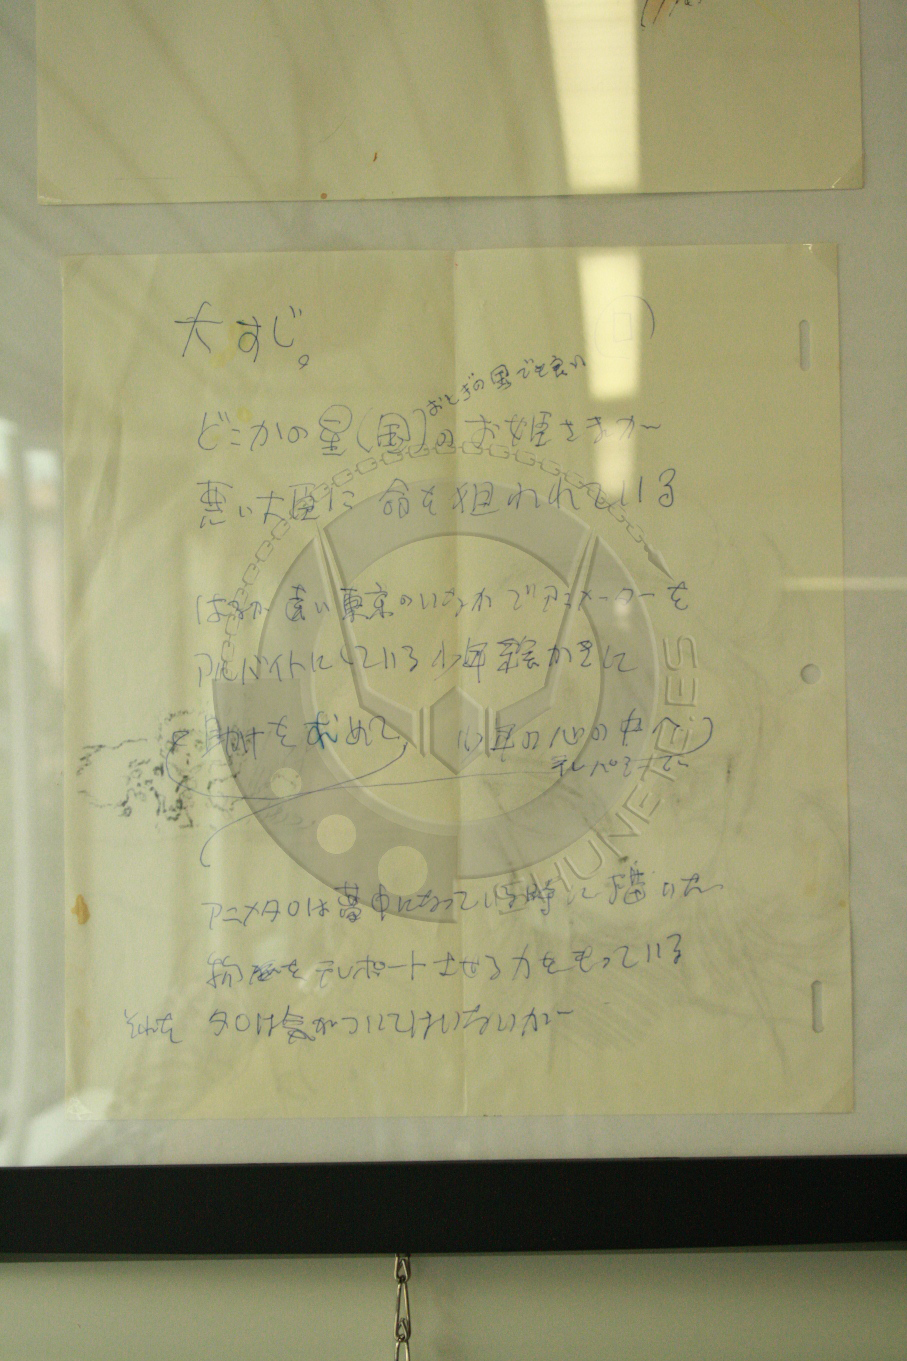 大すじ。
おとぎの国でも良い
どこかの星(国)のお姫さまが
悪い大臣に 命を狙われている
はるか遠い東京のいなかでアニメーターを
アルバイトにしている少年絵かきに
(助けを求めて、少年の心の中へ)
テレパシーで
アニメタロは夢中になっている時に描いた
物をテレポートさせる力をもっている
それを タロは気がついてはいないが
SHUNETE.ES